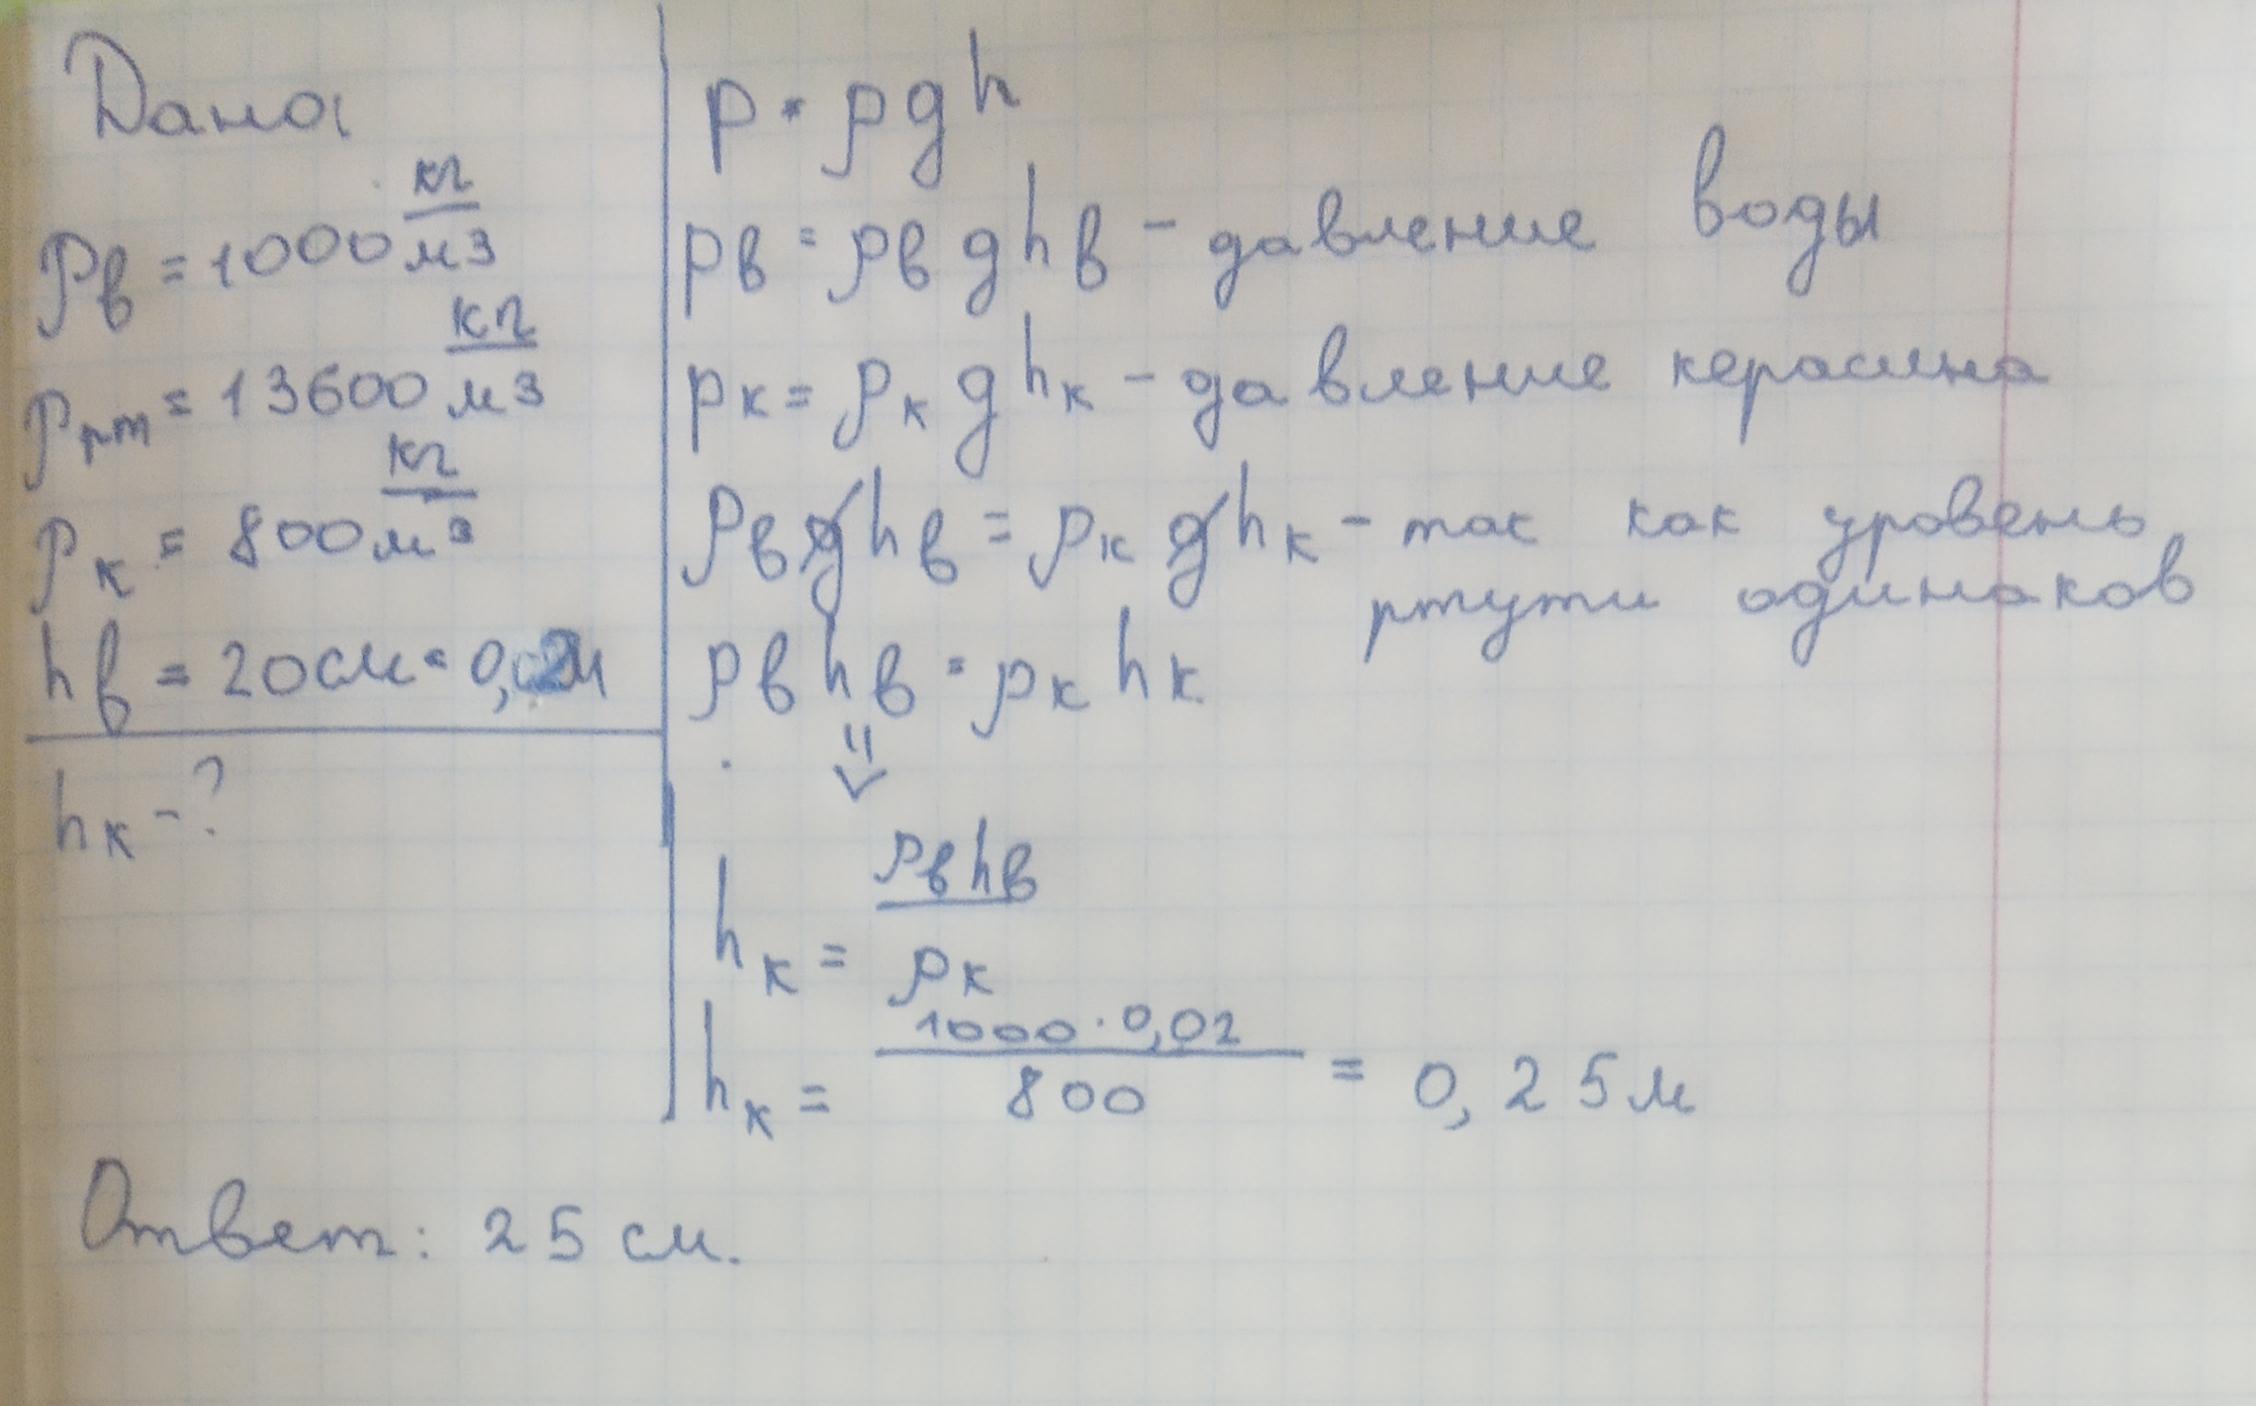 Дано:
ρв = 1000 кг/м3
ρрт = 13600 кг/м3
ρк = 800 кг/м3
hв = 20см = 0,2м
hк - ?
p = ρgh
pв = ρвghв - давление воды
pк = ρкghк - давление керосина
ρвghв = ρкghк - так как уровень
ртути одинаков
ρвhв = ρкhк
⇓
hк = ρвhв/ρк
hк = 1000·0,02/800 = 0,25м
Ответ: 25 см.